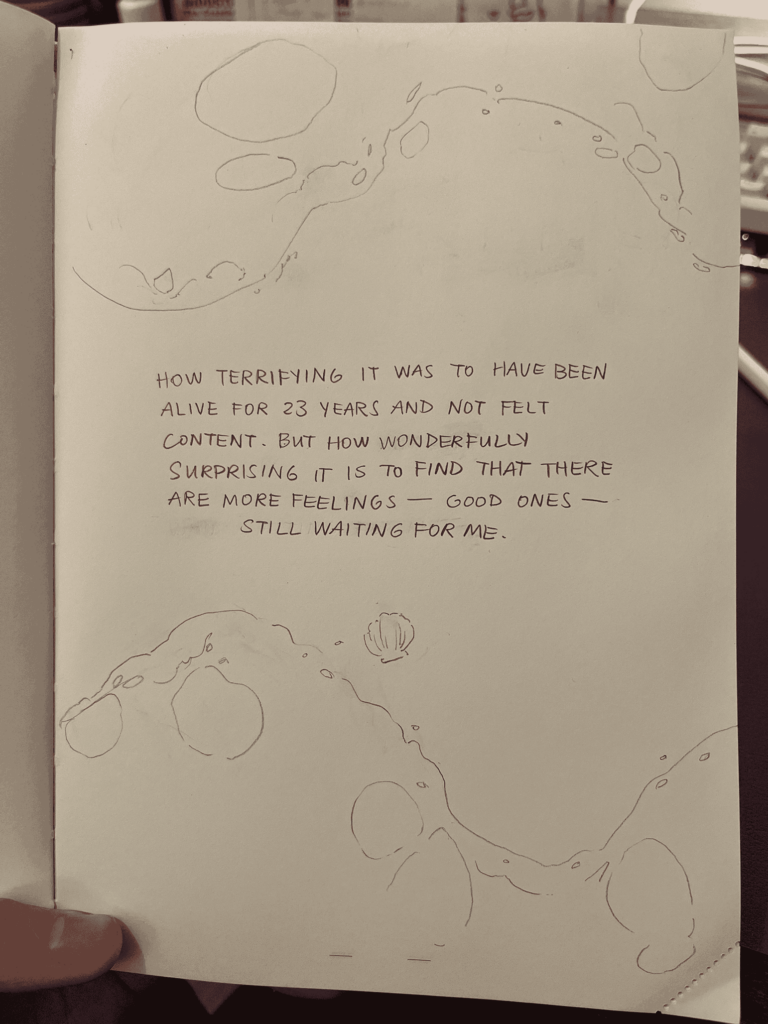 HOW TERRIFYING IT WAS TO HAVE BEEN
ALIVE FOR 23 YEARS AND NOT FELT
CONTENT. BUT HOW WONDERFULLY
SURPRISING IT IS TO FIND THAT THERE
ARE MORE FEELINGS — GOOD ONES —
STILL WAITING FOR ME.